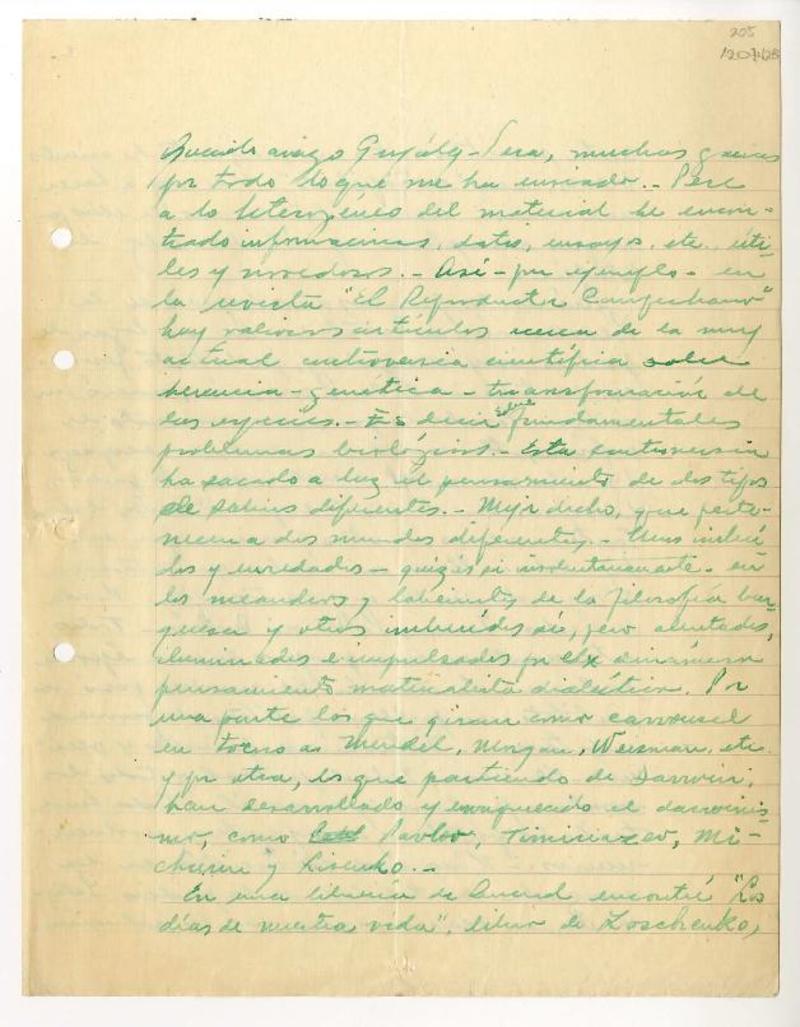 205
120428
Querido amigo Pera, muchas gracias
por todo lo que me ha enviado.. Pese
a lo heterogéneo del material he encon-
trado informaciones, datos, ensayos, etc. úti-
les y novedosos.- Así - por ejemplo - en
la revista "El Reproductor Campechano"
hay valiosos artículos acerca de la muy
actual controversia científica sobre
herencia - genética - transformación de
las especies.- Es decir sobre fundamentales
problemas biológicos.- Esta controversia
ha sacado a luz el pensamiento de dos tipos
de sabios diferentes.- Mejor dicho, que perte-
necen a dos mundos diferentes.- Unos imbuí
dos y enredados - quizás si involuntariamente - en
los meandros y laberintos de la filosofía bur-
guesa y otros imbuídos sí, pero alentados,
iluminados e impulsados por el dinámico
pensamiento materialista dialéctico. Por
una parte los que giran como carrousel
en torno a Mendel, Morgan, Weisman, etc.
y por otra, los que partiendo de Darwin,
han desarrollado y enriquecido el darwinis-
mo, como Pavlov, Timiriazev, Mi-
churin y Lisenko.-
En una librería de encontré "Los
días de nuestra vida", libro de Zoschenko,